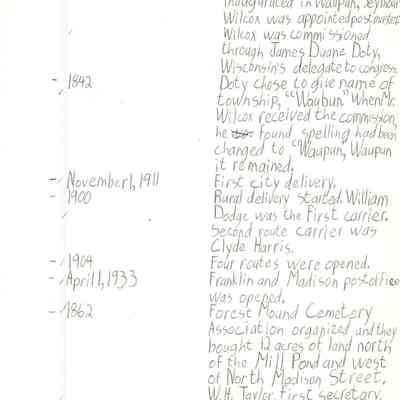 inaugurated in Waupun, Seymour
Wilcox was appointed postmaster
Wilcox was commissioned
through James Duane Doty,
Wisconsin's delegate to congress.
- 1842 Doty chose to give name of
township, "Waubun." When Mr.
Wilcox received the commission,
he found spelling had been
changed to "Waupun," Waupun
it remained.
- November 1, 1911 First city delivery.
- 1900 Rural delivery started. William
Dodge was the first carrier.
Second route carrier was
Clyde Harris.
- 1904 Four routes were opened.
- April 1, 1933 Franklin and Madison post office
was opened.
- 1862 Forest Mound Cemetery
Association organized and they
bought 12 acres of land north
of the Mill Pond and west
of North Madison Street.
W.H. Taylor, first secretary.